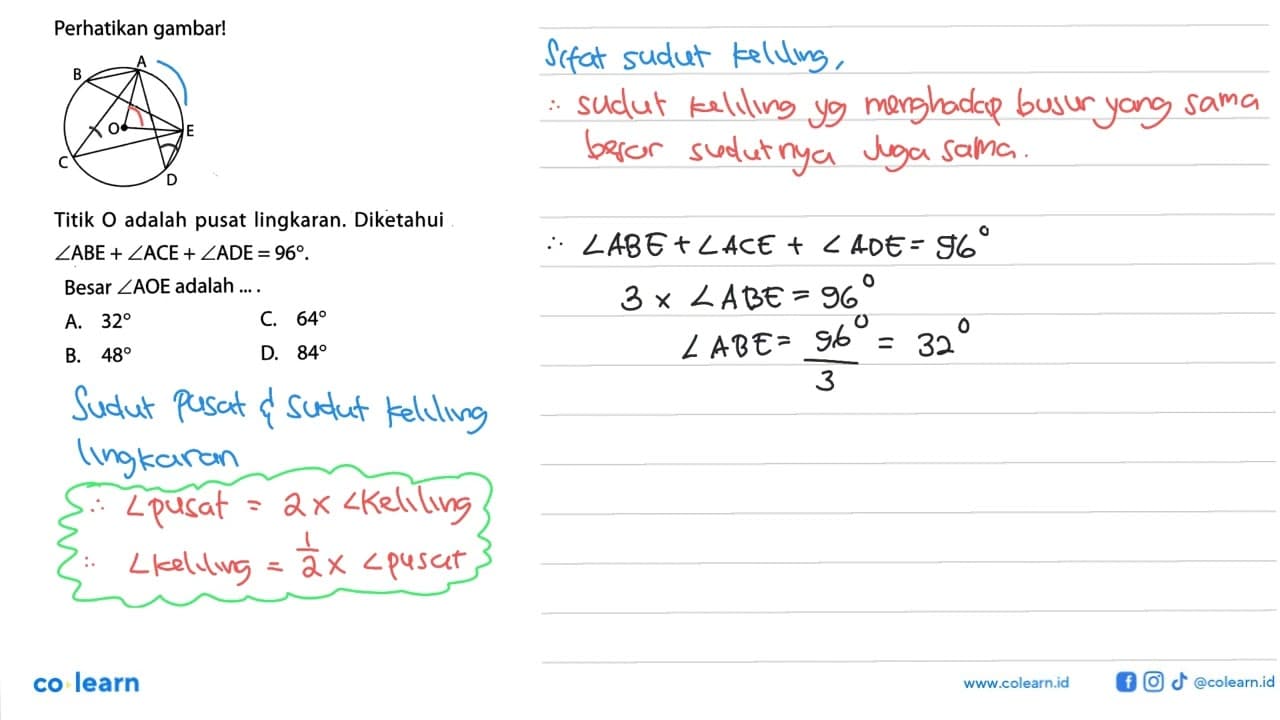 Perhatikan gambar!
A
B
O
E
C
D
Titik O adalah pusat lingkaran. Diketahui
∠ABE + ∠ACE + ∠ADE = 96°.
Besar ∠AOE adalah ... .
A. 32° C. 64°
B. 48° D. 84°
Sudut pusat & sudut keliling
lingkaran
∴ ∠pusat = 2 × ∠keliling
∴ ∠keliling = 1/2 × ∠pusat
Sifat sudut keliling,
∴ sudut keliling yg menghadap busur yang sama
besar sudutnya juga sama.
∴ ∠ABE + ∠ACE + ∠ADE = 96°
3 × ∠ABE = 96°
∠ABE = 96°/3 = 32°
co learn
www.colearn.id
@colearn.id